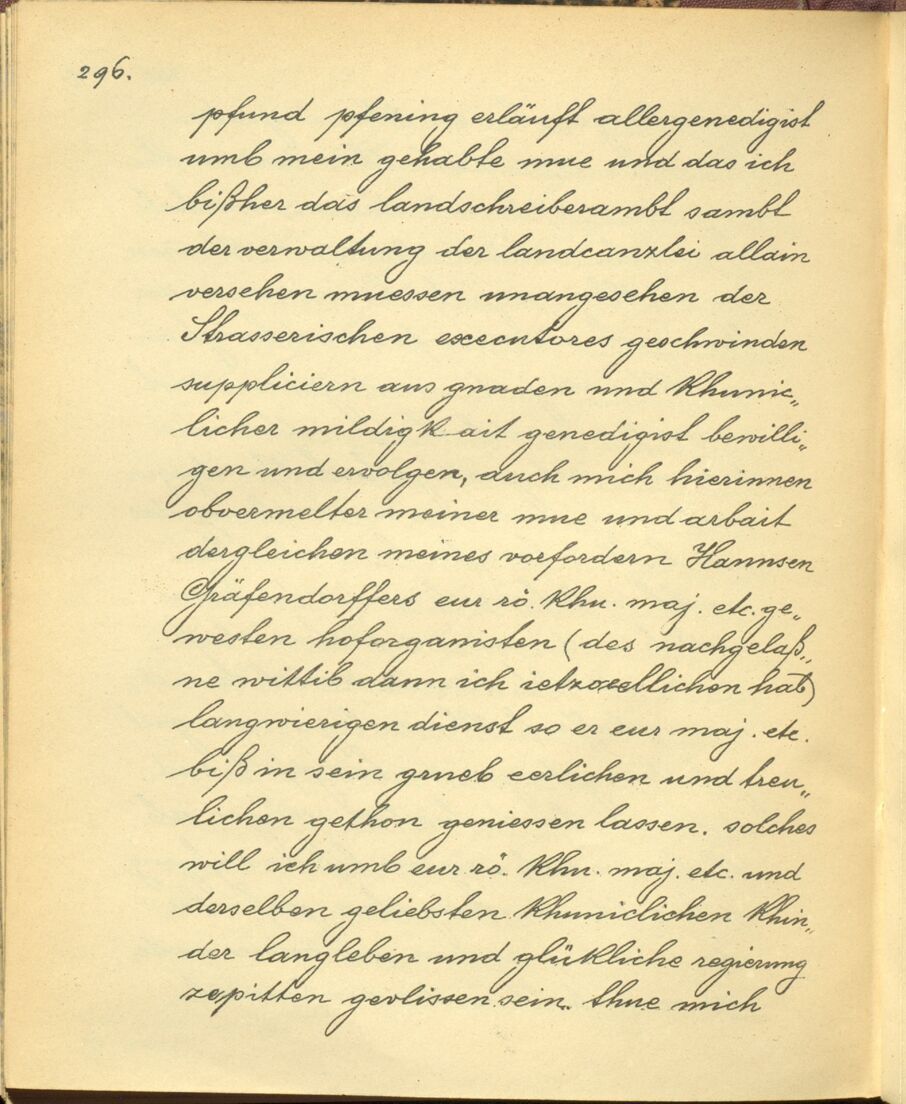 296.
pfund pfening erläuft allergenedigist
umb mein gehabte mue und das ich
bißher das landschreiberambt sambt
der verwaltung der landcanzlei allain
versehen muessen unangesehen der
Strasserischen executores geschwinden
suppliciern aus gnaden und khunic„
licher mildigkait genedigist bewilli„
gen und ervolgen, auch mich hierinnen
obvermelter meiner mue und arbait
dergleichen meines vorfordern Hannsen
Gräfendorffers eur rö. khu. maj. etc. ge„
westen hoforganisten (des nachgelaß„
ne wittib dann ich ietzo eelichen hab)
langwierigen dienst so er eur maj. etc.
biß in sein grueb eerlichen und treu„
lichen gethon geniessen lassen. solches
will ich umb eur rö. khu. maj. etc. und
derselben geliebsten khuniclichen khin„
der langleben und glükliche regierung
ze pitten gevlissen sein. thue mich